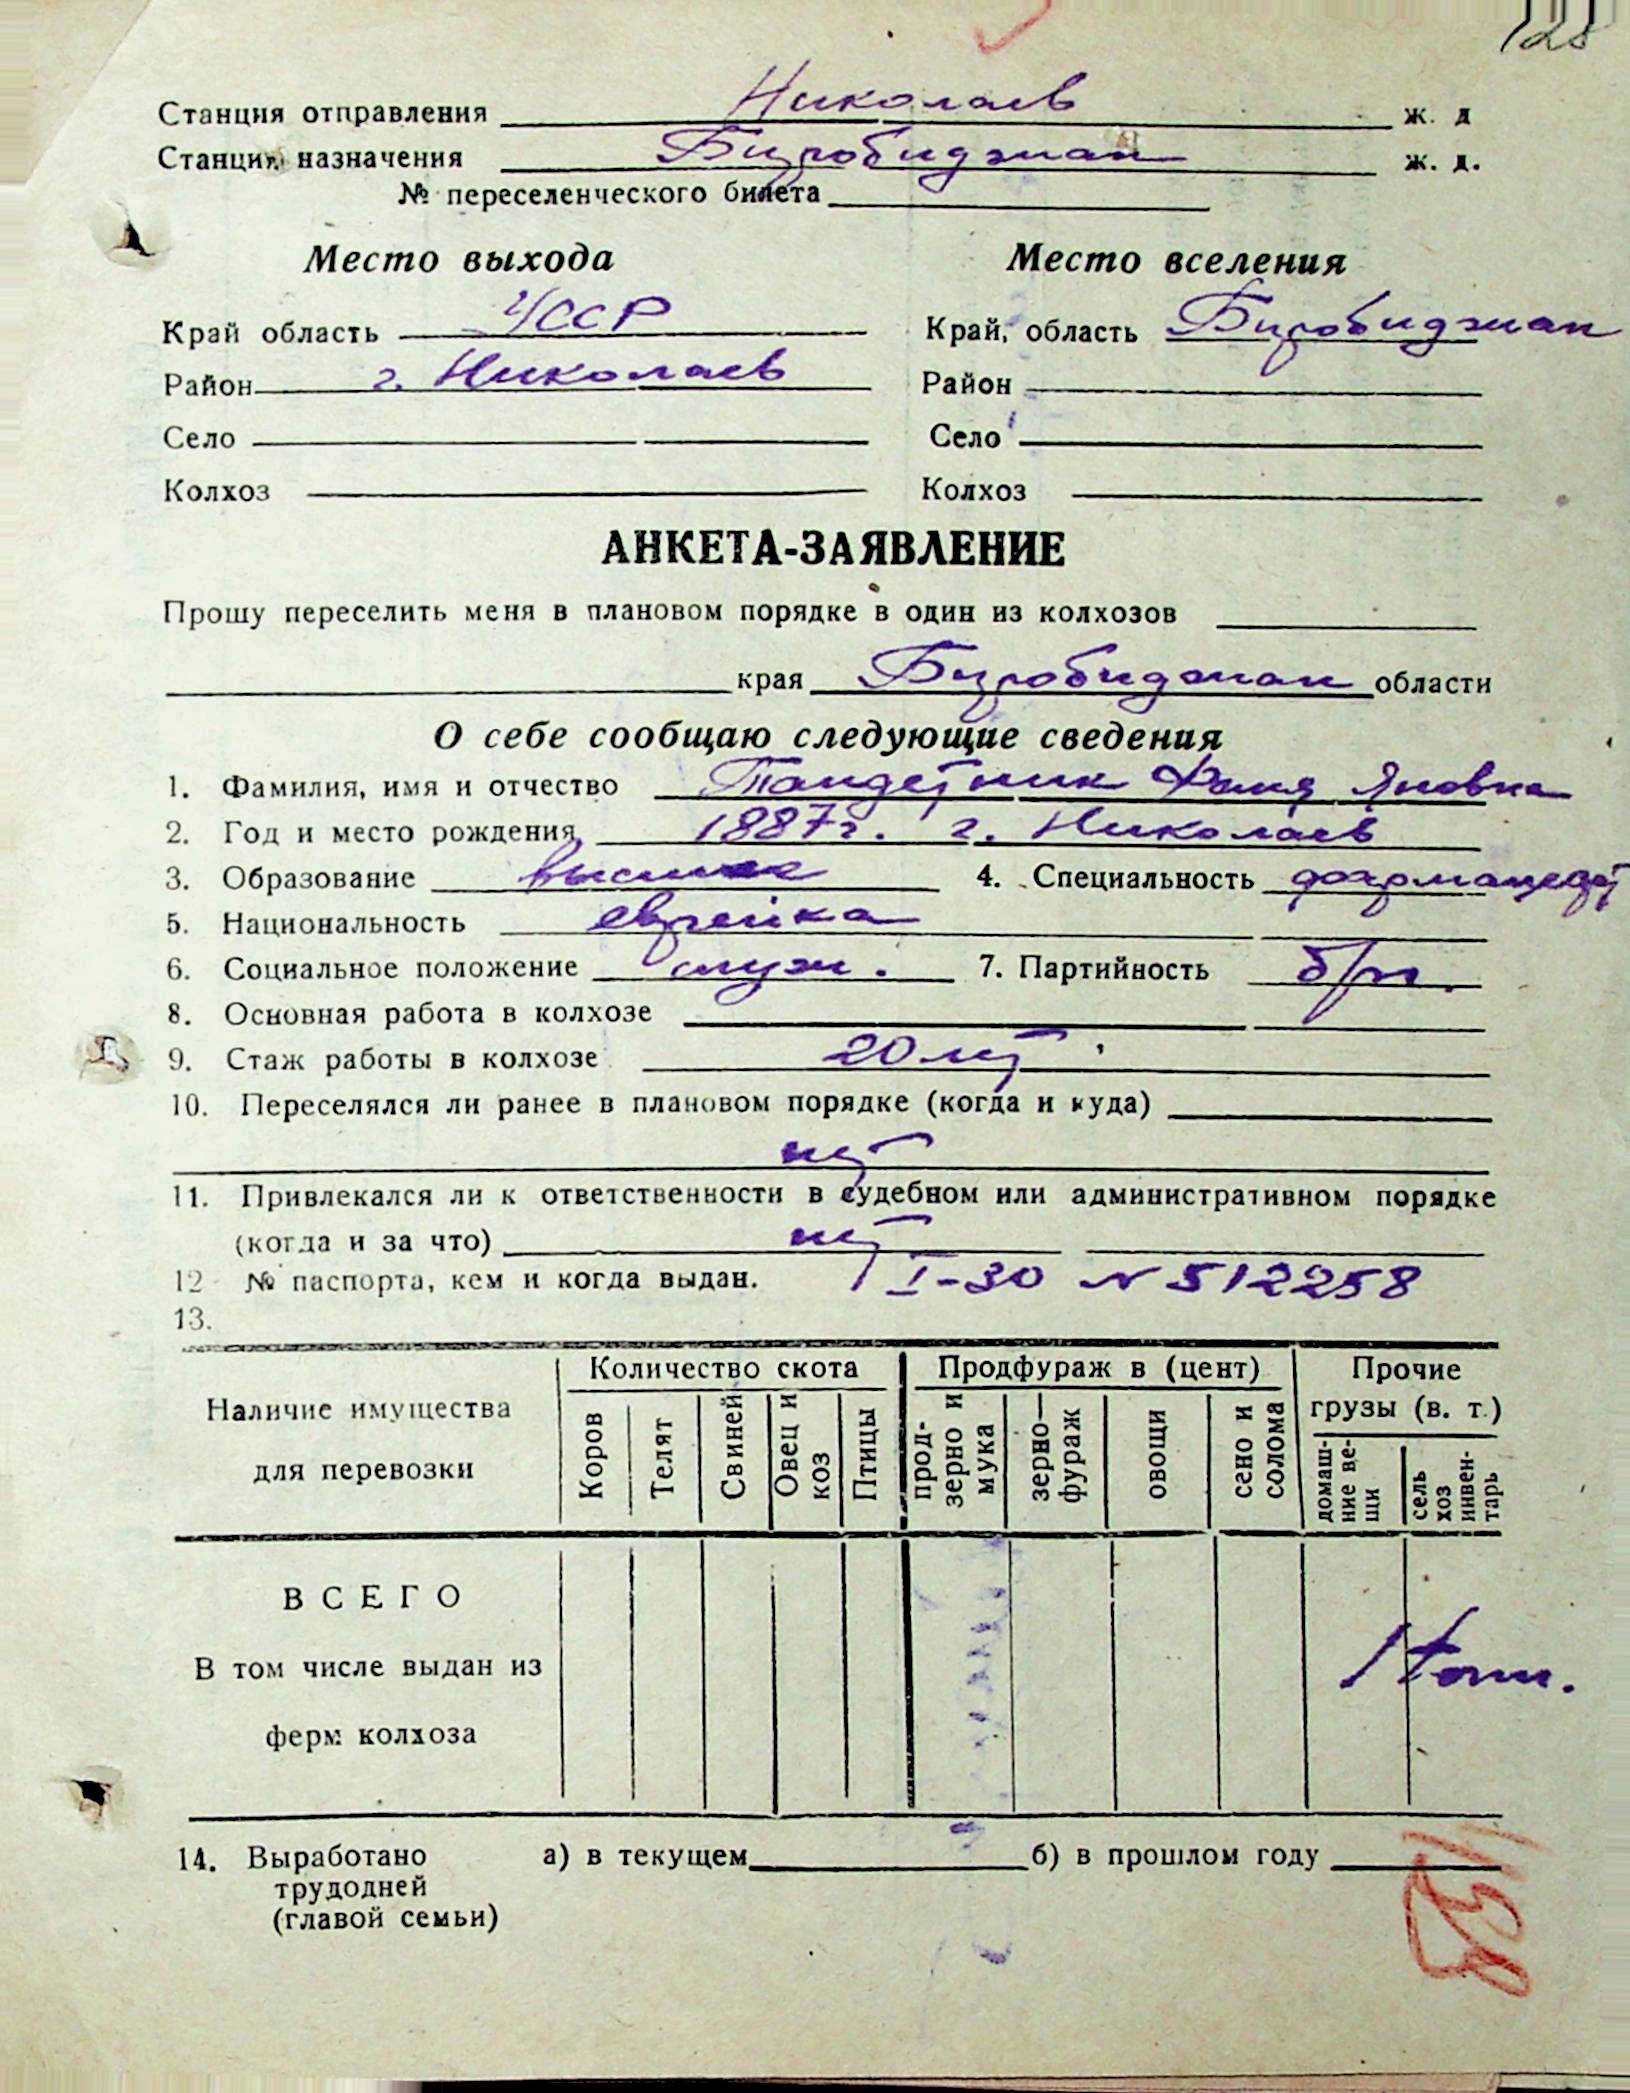 128
Станция отправления Николаев ж. д
Станция назначения Биробиджан ж. д.
№ переселенческого билета
Место выхода
Место вселения
Край область УССР
Край, область Биробиджан
Район г. Николаев
Район
Село
Село
Колхоз
Колхоз
АНКЕТА-ЗАЯВЛЕНИЕ
Прошу переселить меня в плановом порядке в один из колхозов
края Биробиджан области
О себе сообщаю следующие сведения
1. Фамилия, имя и отчество Тандетник Фаня Яновна
2. Год и место рождения 1887г. г. Николаев
3. Образование высшее 4. Специальность фармацевт
5. Национальность еврейка
6. Социальное положение служ. 7. Партийность б/п.
8. Основная работа в колхозе
9. Стаж работы в колхозе 20 лет
10. Переселялся ли ранее в плановом порядке (когда и куда)
нет
11. Привлекался ли к ответственности в судебном или административном порядке
(когда и за что) нет
12 № паспорта, кем и когда выдан. I-30 N 512258
13.
Наличие имущества
для перевозки
Количество скота
Продфураж в (цент)
Прочие
грузы (в. т.)
Коров
Телят
Свиней
Овец и
коз
Птицы
прод-
зерно и
мука
зерно—
фураж
овощи
сено и
солома
домаш-
ние ве-
щи
сель
хоз
инвен-
тарь
ВСЕГО
В том числе выдан из
ферм колхоза
1 тон.
14. Выработано а) в текущем б) в прошлом году
трудодней
(главой семьи)